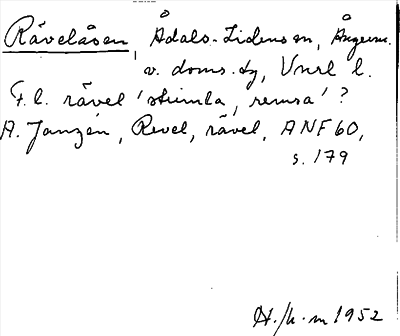 Råvelåsen, Ådals-Lidens sn, Ångerm.
v. doms. dg, Vnrl l.
F.l. råvel 'strimla, remsa'?
A. Janzén, Revel, råvel, ANF 60,
s. 179
1952